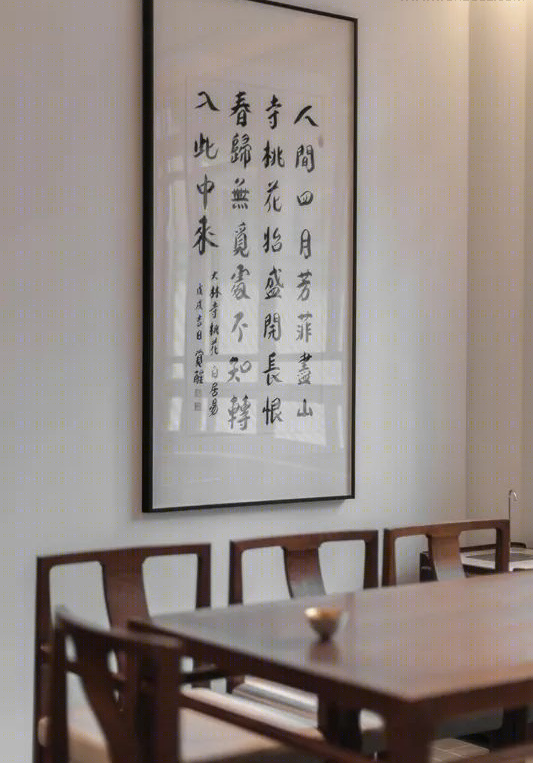 人間四月芳菲盡山
寺桃花始盛開長恨
春歸無覓處不知轉
入此中來
大林寺桃花 白居易
戊戌吉日